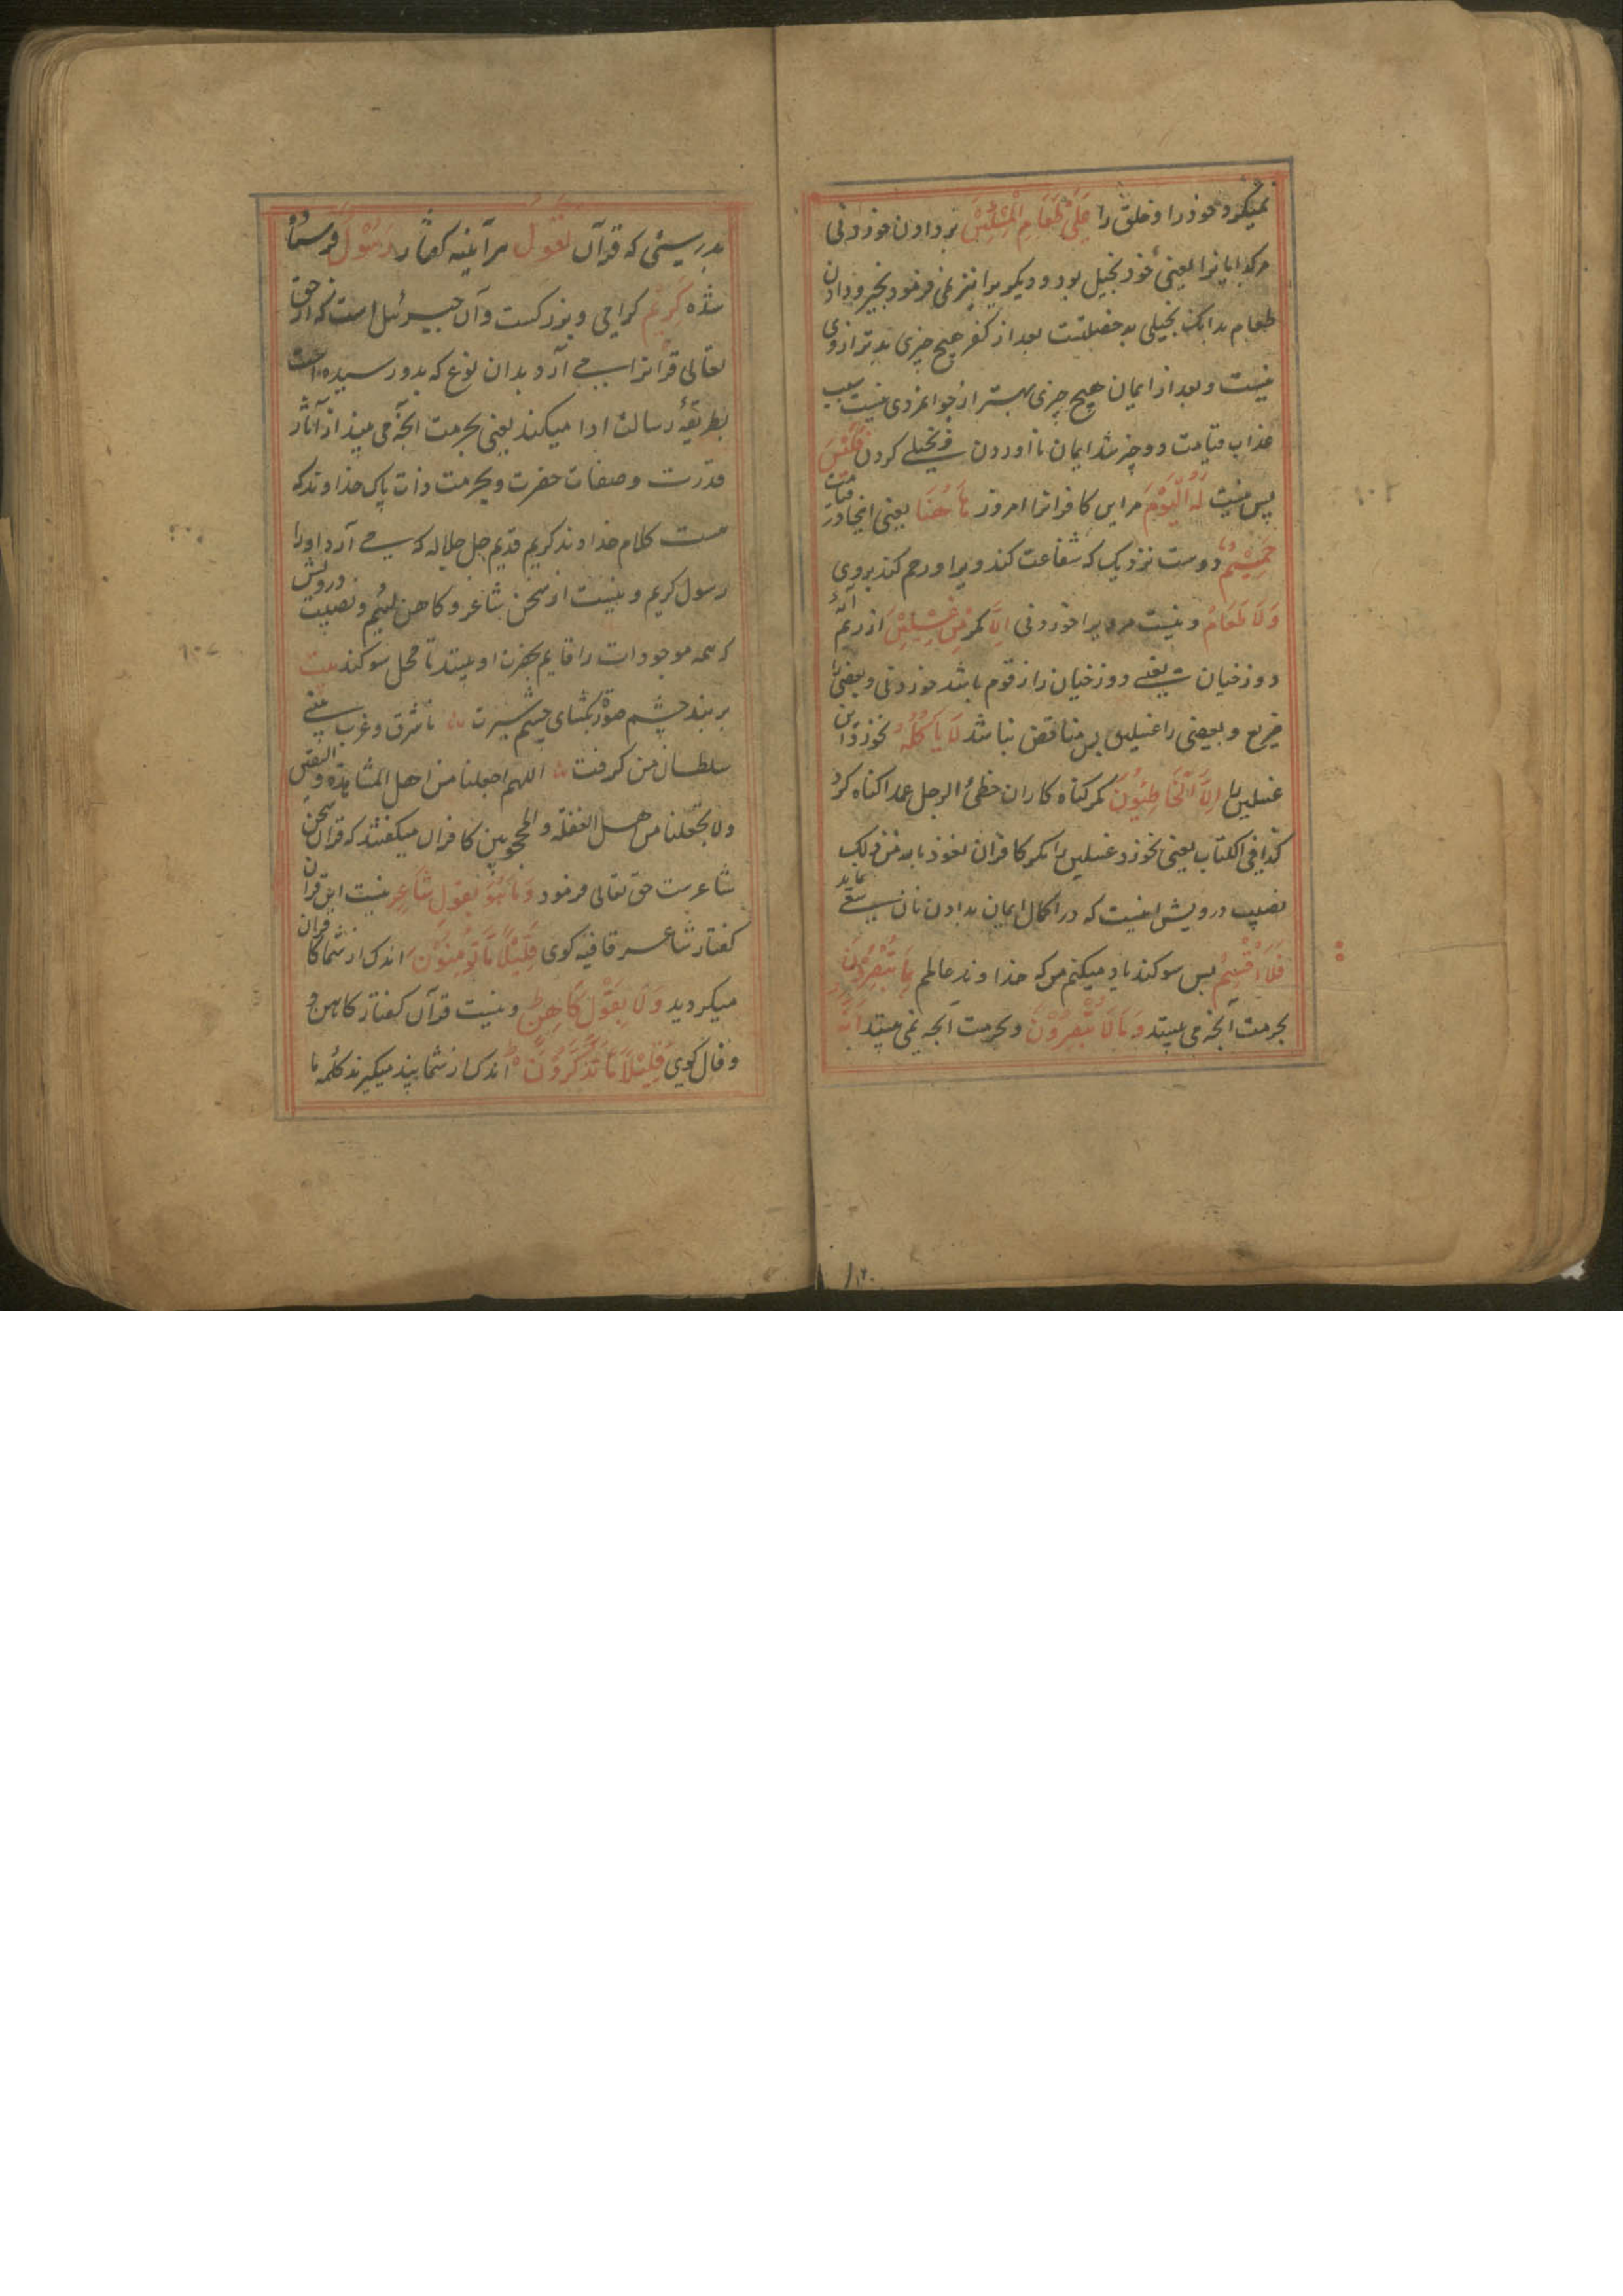 نمیکرد خود را و خلق را عَلَیٰ طَعَامِ الْمِسْکِیْنِ بر دادن خوردنی
مر کدایانرا یعنی خود بخیل بود و دیکریرا نیز نمی فرمود بخیر و دادن
طعام بدانک بخیلی بد خصلتست بعد از کفر هیچ چیزی بدتر ازوی
نیست و بعد از ایمان هیچ چیزی بهتر از جوانمردی نیست سبب
عذاب قیامت دو چیز شد ایمان نا اوردن و بخیلے کردن فَلَیْسَ
پس نیست لَهُ الْیَوْمَ مر این کافرانرا امروز هَاهُنَا یعنی اینجا در قیامت
حَمِیْمٌ دوست نزدیک که شفاعت کند ویرا و رحم کند بروی
وَلَا طَعَامٌ و نیست مر ویرا خوردنی اِلَّا مکر مِنْ غِسْلِیْنٍ از ریم
دوزخیان یعنے دوزخیان را زقوم باشد خوردنی و بعضی را
ضریع و بعضی را غسلین پس مناقض نباشد لَا یَاْکُلُهُ نخورد این
غسلین را اِلَّا الْخَاطِئُوْنَ مکر کناه کاران خطئ الرجل عمدا کناه کرد
کذا فی الکتاب یعنی نخورد غسلین را مکر کافران نعوذ بالله من ذلک
نصیب درویش اینست که در اکمال ایمان بدادن نان سعے نماید
فَلَا اُقْسِمُ پس سوکند یاد میکنم من که خداوند عالمم بِمَا تُبْصِرُوْنَ
بحرمت آنچه می بینید وَمَا لَا تُبْصِرُوْنَ و بحرمت آنچه نمی بینید اِنَّهُ
بدرستی که قرآن لَقَوْلُ هر آینه کفتار رَسُوْلٍ فرستاده
شده کَرِیْمٍ کرامی و بزرکست و آن جبرئیل است که از حق
تعالی قرانرا مے آرد بدان نوع که بدو رسیده است
بطریقهٔ رسالت ادا میکند یعنی بحرمت انچه می بیند از آثار
قدرت و صفات حضرت و بحرمت ذات پاک خداوند که
هست کلام خداوند کریم قدیم جل جلاله که مے آرد اورا
رسول کریم و نیست از سخن شاعر و کاهن لئیم و نصیب درویش
که همه موجودات را قایم بحق اوبیند تا محل سوکند بیت
بربند چشم صورة بکشای چشم سیرت تا شرق و غرب بینی
سلطان من کرفت اللهم اجعلنا من اهل المشاهدة و الیقین
ولا تجعلنا من اهل الغفلة و المحجوبین کافران میکفتند که قران سخن
شاعرست حق تعالی فرمود وَمَا هُوَ بِقَوْلِ شَاعِرٍ نیست این قران
کفتار شاعر قافیه کوی قَلِیْلًا مَا تُؤْمِنُوْنَ اندک از شما کافران
میکروید وَلَا بِقَوْلِ کَاهِنٍ و نیست قرآن کفتار کاهن
و فال کوی قَلِیْلًا مَا تَذَکَّرُوْنَ اندک از شما پند میکیرند کلمه ما